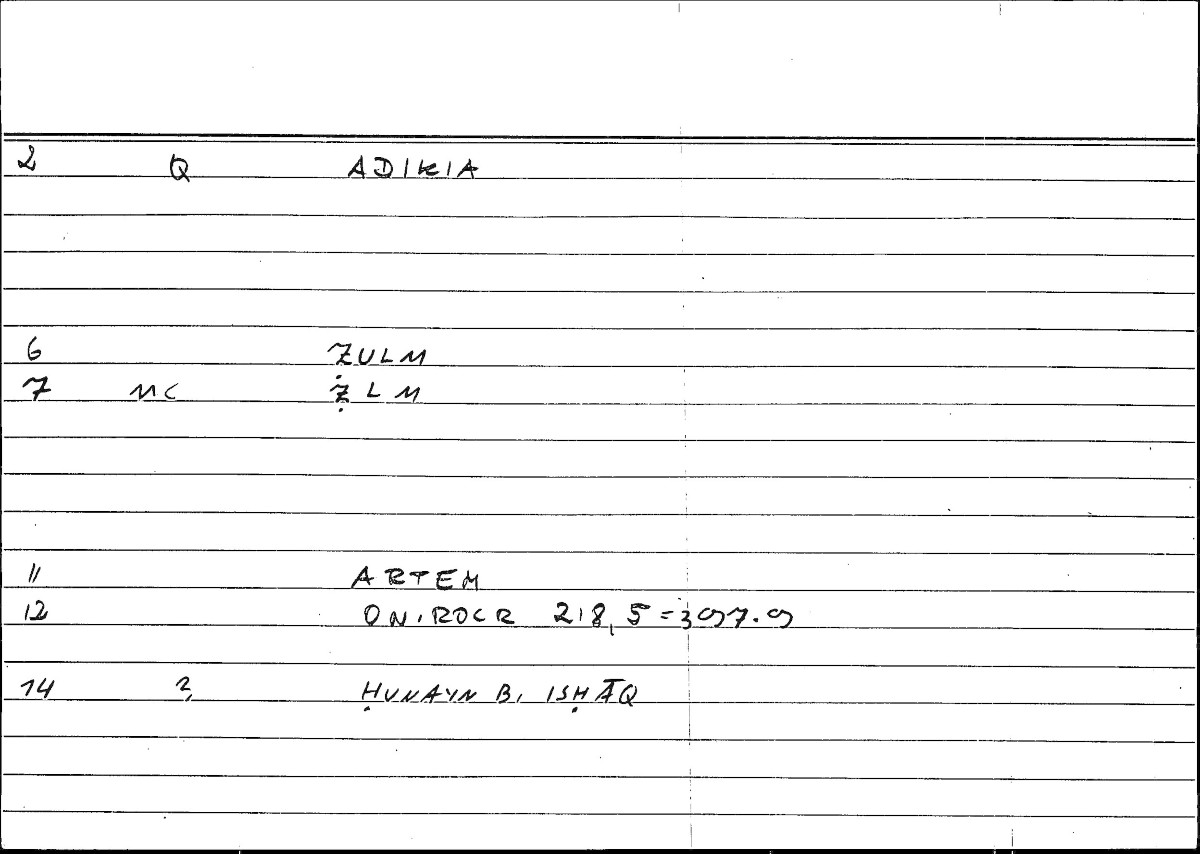 2 Q ADIKIA
6 ẒULM
7 MC ẒLM
11 ARTEM
12 ONIROCR 218,5=397.9
14 2, ḤUNAYN B. ISḤĀQ